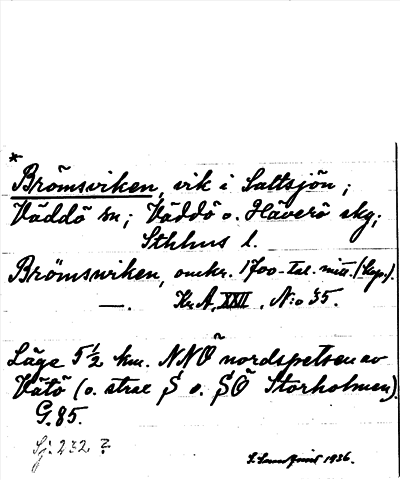 *
Brömsviken, vik i Saltsjön;
Väddö sn; Väddö o. Häverö skg;
Sthlms l.
Brömswiken, omkr. 1700-tal. mitt. (kop.).
—. Kr. A. XXII, N:o 35.
Läge 5½ km. NNÖ nordspetsen av
Vätö (o. strax S o. SÖ Storholmen).
G. 85.
Sj. 232 ?
1936.